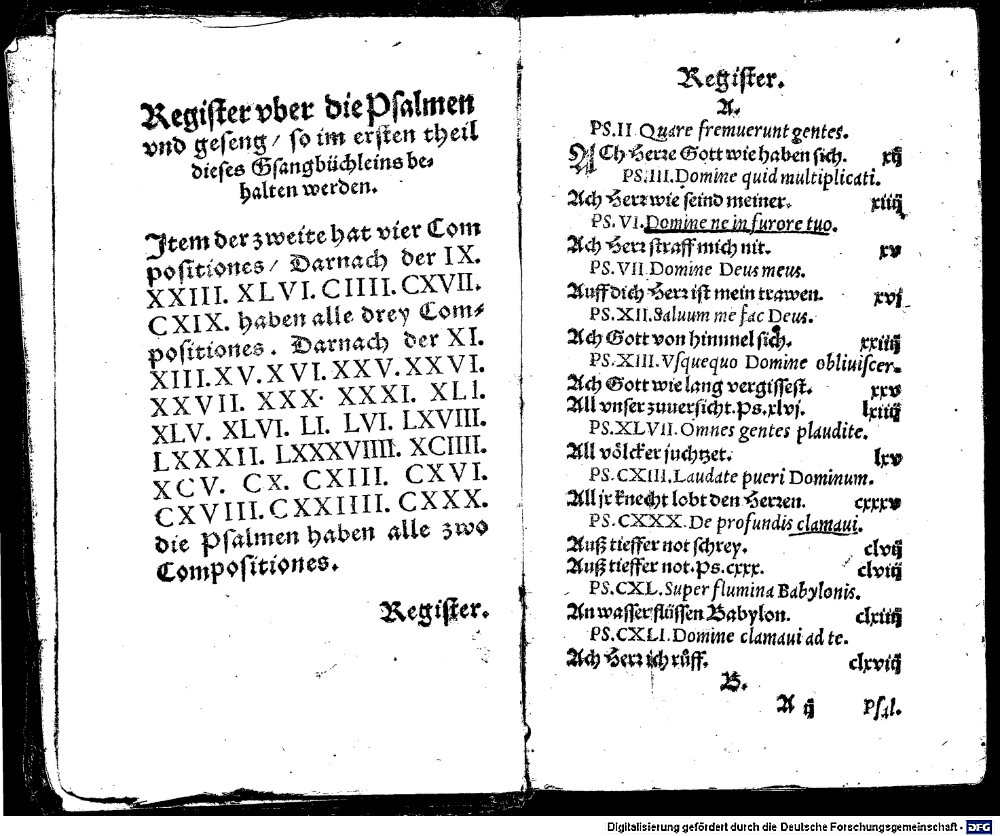 Register vber die Psalmen
vnd geseng / so im ersten theil
dieses Gsangbüchleins be-
halten werden.
Item der zweite hat vier Com
positiones / Darnach der IX.
XXIII. XLVI. CIIII. CXVII.
CXIX. haben alle drey Com-
positiones. Darnach der XI.
XIII. XV. XVI. XXV. XXVI.
XXVII. XXX. XXXI. XLI.
XLV. XLVI. LI. LVI. LXVIII.
LXXXII. LXXXVIIII. XCIIII.
XCV. CX. CXIII. CXVI.
CXVIII. CXXIIII. CXXX.
die Psalmen haben alle zwo
Compositiones.
Register.
Register.
A.
PS. II. Quare fremuerunt gentes.
ACh Herre Gott wie haben sich. xij
PS. III. Domine quid multiplicati.
Ach Herr wie seind meiner. xiiij
PS. VI. Domine ne in furore tuo.
Ach Herr straff mich nit. xv
PS. VII. Domine Deus meus.
Auff dich Herr ist mein trawen. xvj
PS. XII. Saluum me fac Deus.
Ach Gott von himmel sich. xxiiij
PS. XIII. Vsquequo Domine obliuiscer.
Ach Gott wie lang vergissest. xxv
All vnser zuuersicht. Ps. xlvj. lxiiij
PS. XLVII. Omnes gentes plaudite.
All völcker juchtzet. lxv
PS. CXIII. Laudate pueri Dominum.
All jr knecht lobt den Herren. cxxxv
PS. CXXX. De profundis clamaui.
Auß tieffer not schrey. clvij
Auß tieffer not. Ps. cxxx. clviij
PS. CXL. Super flumina Babylonis.
An wasser flüssen Babylon. clxiiij
PS. CXLI. Domine clamaui ad te.
Ach Herr ich rüff. clxviij
B.
A ij Psal.
Digitalisierung gefördert durch die Deutsche Forschungsgemeinschaft - DFG